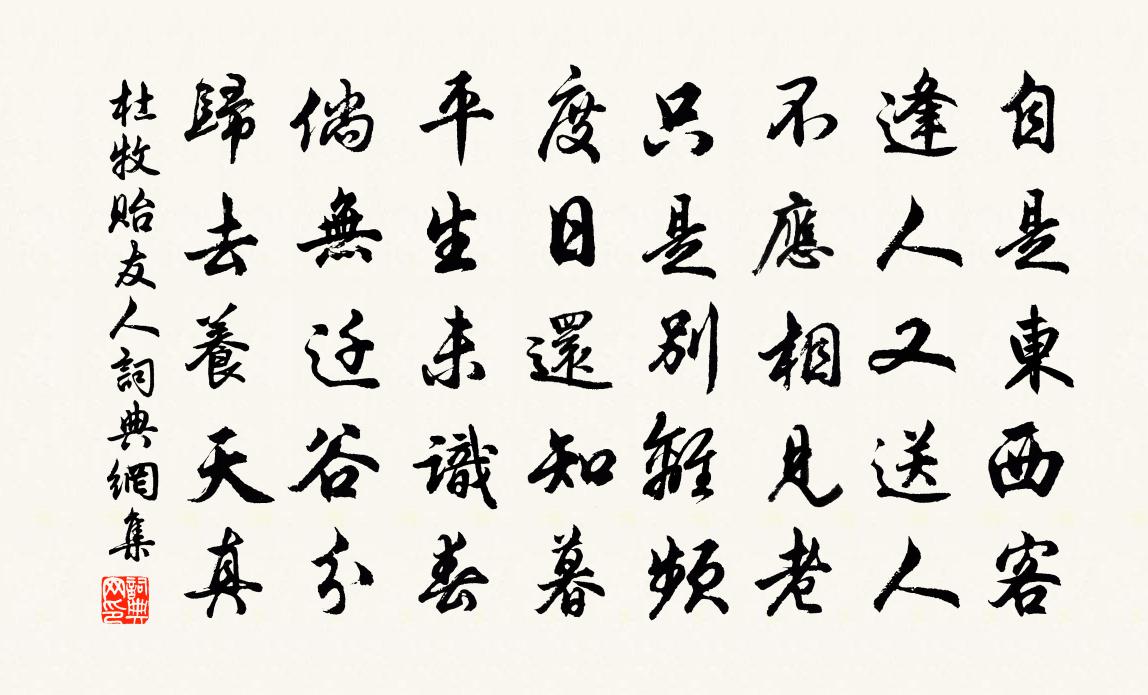 自是東西客
逢人又送人
不應相見老
只是別離頻
度日還知暮
平生未識春
倘無遷谷分
歸去養天真
杜牧貽友人詞典網集
詞典網印